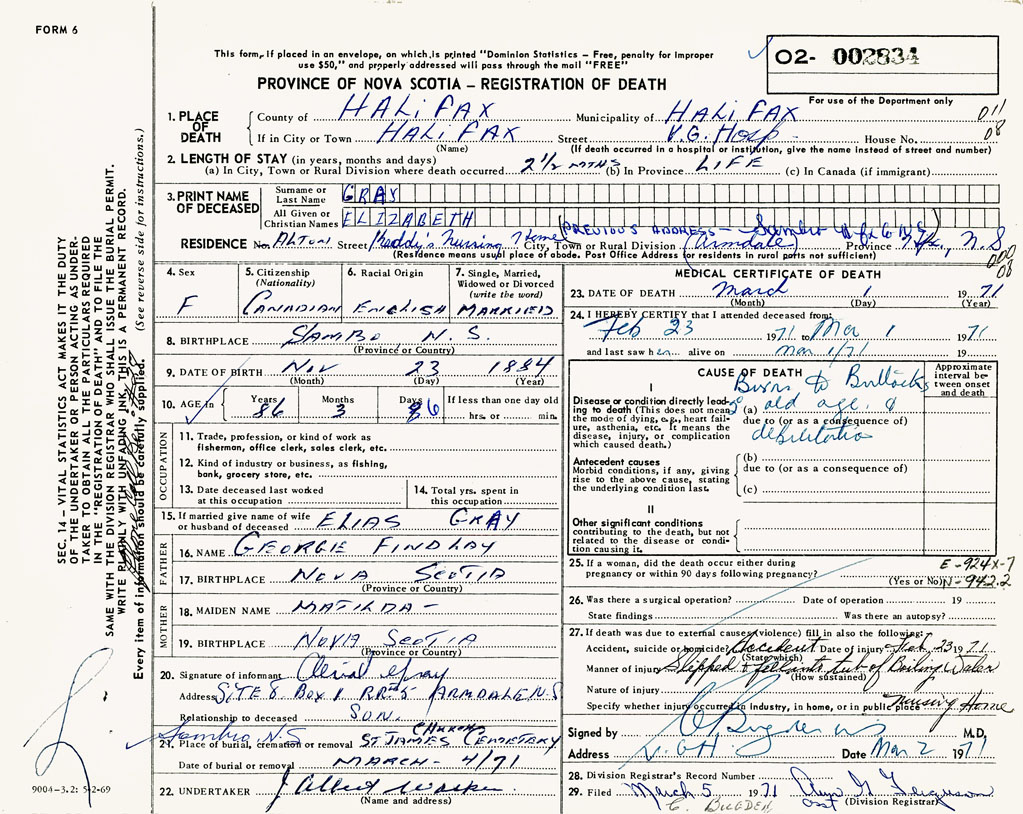 FORM 6
This form, If placed in an envelope, on which is printed "Dominion Statistics – Free, penalty for Improper
use $50," and properly addressed will pass through the mail "FREE"
02- 002834
For use of the Department only
PROVINCE OF NOVA SCOTIA – REGISTRATION OF DEATH
1. PLACE OF DEATH
County of HALIFAX Municipality of HALIFAX 011
If in City or Town HALIFAX Street V.G. Hosp. House No. 08
(Name) (If death occurred in a hospital or institution, give the name instead of street and number)
2. LENGTH OF STAY (in years, months and days)
(a) In City, Town or Rural Division where death occurred 2 1/2 MTHS (b) In Province LIFE (c) In Canada (if immigrant)
3. PRINT NAME OF DECEASED
Surname or Last Name GRAY
All Given or Christian Names ELIZABETH
(PREVIOUS ADDRESS –
RESIDENCE No. Street Nursing Home City, Town or Rural Division (Armdale) Province N.S
(Residence means usual place of abode. Post Office Address for residents in rural parts not sufficient)
000
08
4. Sex
F
5. Citizenship (Nationality)
CANADIAN
6. Racial Origin
ENGLISH
7. Single, Married, Widowed or Divorced (write the word)
MARRIED
8. BIRTHPLACE SAMBRO N.S.
(Province or Country)
9. DATE OF BIRTH NOV 23 1884
(Month) (Day) (Year)
10. AGE in Years 86 Months 3 Days 6 If less than one day old
hrs. or min.
OCCUPATION
11. Trade, profession, or kind of work as
fisherman, office clerk, sales clerk, etc.
12. Kind of industry or business, as fishing,
bank, grocery store, etc.
13. Date deceased last worked
at this occupation
14. Total yrs. spent in
this occupation
15. If married give name of wife
or husband of deceased ELIAS GRAY
FATHER
16. NAME GEORGE FINDLAY
17. BIRTHPLACE NOVA SCOTIA
(Province or Country)
MOTHER
18. MAIDEN NAME MATILDA –
19. BIRTHPLACE NOVA SCOTIA
(Province or Country)
20. Signature of informant Gray
Address SITE 8 BOX 1 RR#5 ARMDALE N.S
Relationship to deceased SON.
Sambro N.S CHURCH
21. Place of burial, cremation or removal ST JAMES CEMETARY
Date of burial or removal MARCH – 4/71
22. UNDERTAKER J Albert Walker
(Name and address)
MEDICAL CERTIFICATE OF DEATH
23. DATE OF DEATH March 1 1971
(Month) (Day) (Year)
24. I HEREBY CERTIFY that I attended deceased from:
Feb 23 1971 to Mar 1 1971
and last saw her alive on Mar 1/71 19
CAUSE OF DEATH
Approximate interval between onset and death
I
Disease or condition directly leading to death (This does not mean the mode of dying, e.g., heart failure, asthenia, etc. It means the disease, injury, or complication which caused death.)
Burns to Buttocks
(a) old age &
due to (or as a consequence of)
Antecedent causes
Morbid conditions, if any, giving rise to the above cause, stating the underlying condition last.
(b)
due to (or as a consequence of)
(c)
II
Other significant conditions
contributing to the death, but not related to the disease or condition causing it.
25. If a woman, did the death occur either during
pregnancy or within 90 days following pregnancy?
(Yes or No)
E-924X-7
N-942.2
26. Was there a surgical operation? Date of operation 19
State findings Was there an autopsy?
27. If death was due to external causes (violence) fill in also the following:
Accident, suicide or homicide? Accident Date of injury Feb. 23 1971
(State which)
Manner of injury Slipped & fell into tub of Boiling Water
(How sustained)
Nature of injury
Specify whether injury occurred in industry, in home, or in public place Nursing Home
Signed by M.D.
Address V.G.H. Date Mar 2 1971
28. Division Registrar's Record Number
29. Filed March 5 1971 Ferguson
C. BUGDEN Asst (Division Registrar)
SEC. 14 – VITAL STATISTICS ACT MAKES IT THE DUTY
OF THE UNDERTAKER OR PERSON ACTING AS UNDER-
TAKER TO OBTAIN ALL THE PARTICULARS REQUIRED
IN THE "REGISTRATION OF DEATH" AND TO FILE THE
SAME WITH THE DIVISION REGISTRAR WHO SHALL ISSUE THE BURIAL PERMIT.
WRITE PLAINLY WITH UNFADING INK THIS IS A PERMANENT RECORD.
Every item of information should be carefully supplied. (See reverse side for instructions.)
9004-3.2: 5-2-69